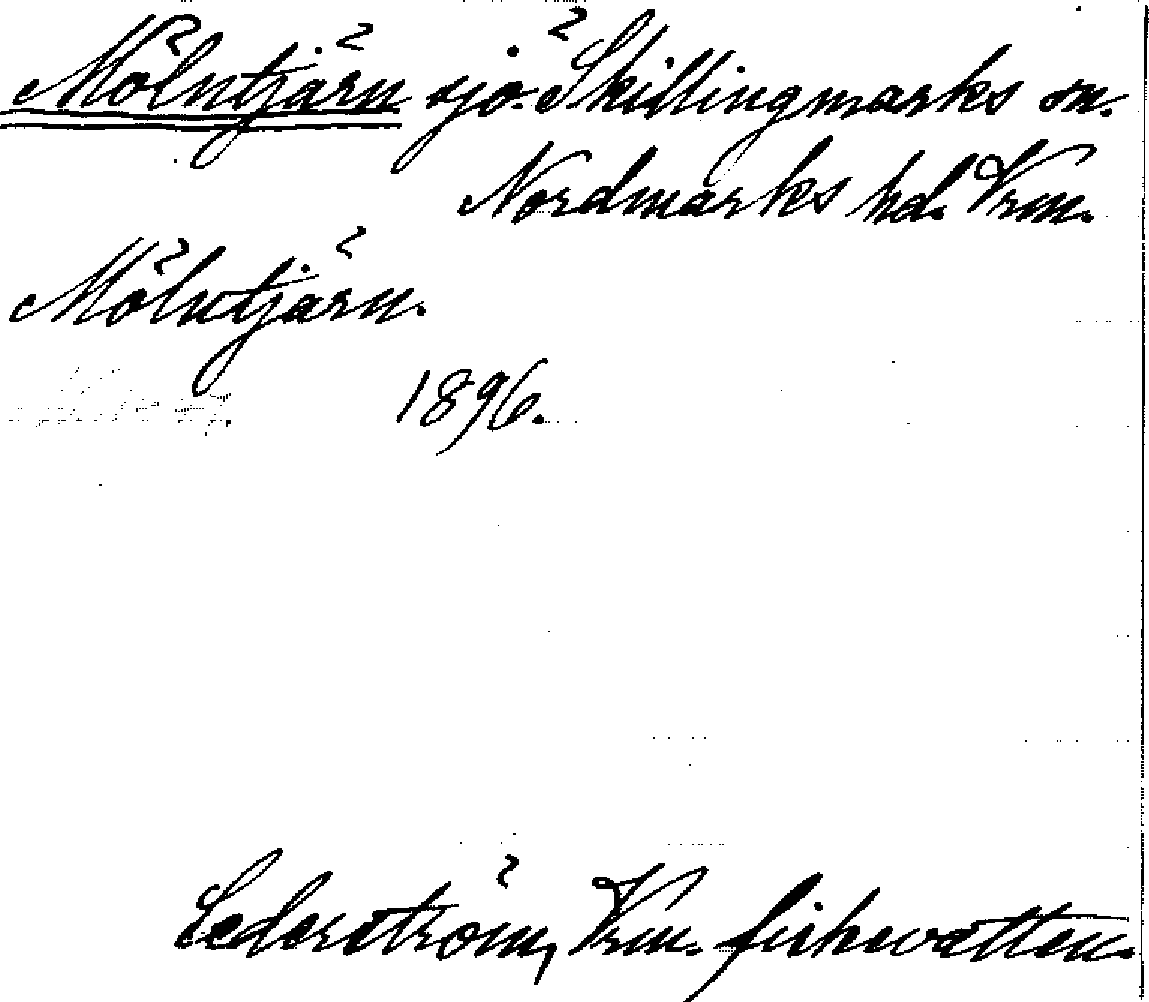 Mölntjärn sjö. Skillingmarks sn.
Nordmarks hd. Vrm.
Mölntjärn.
1896.
Cederström, Vrm. fiskevatten.